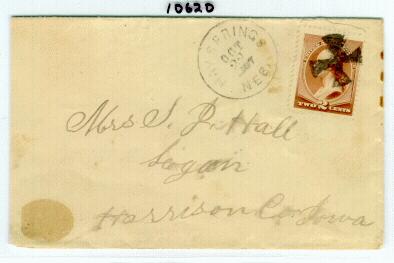 10620
HAY SPRINGS
OCT
NEB.
TWO 2 CENTS
Mrs S. J. Hall
Logan
Harrison Co. Iowa